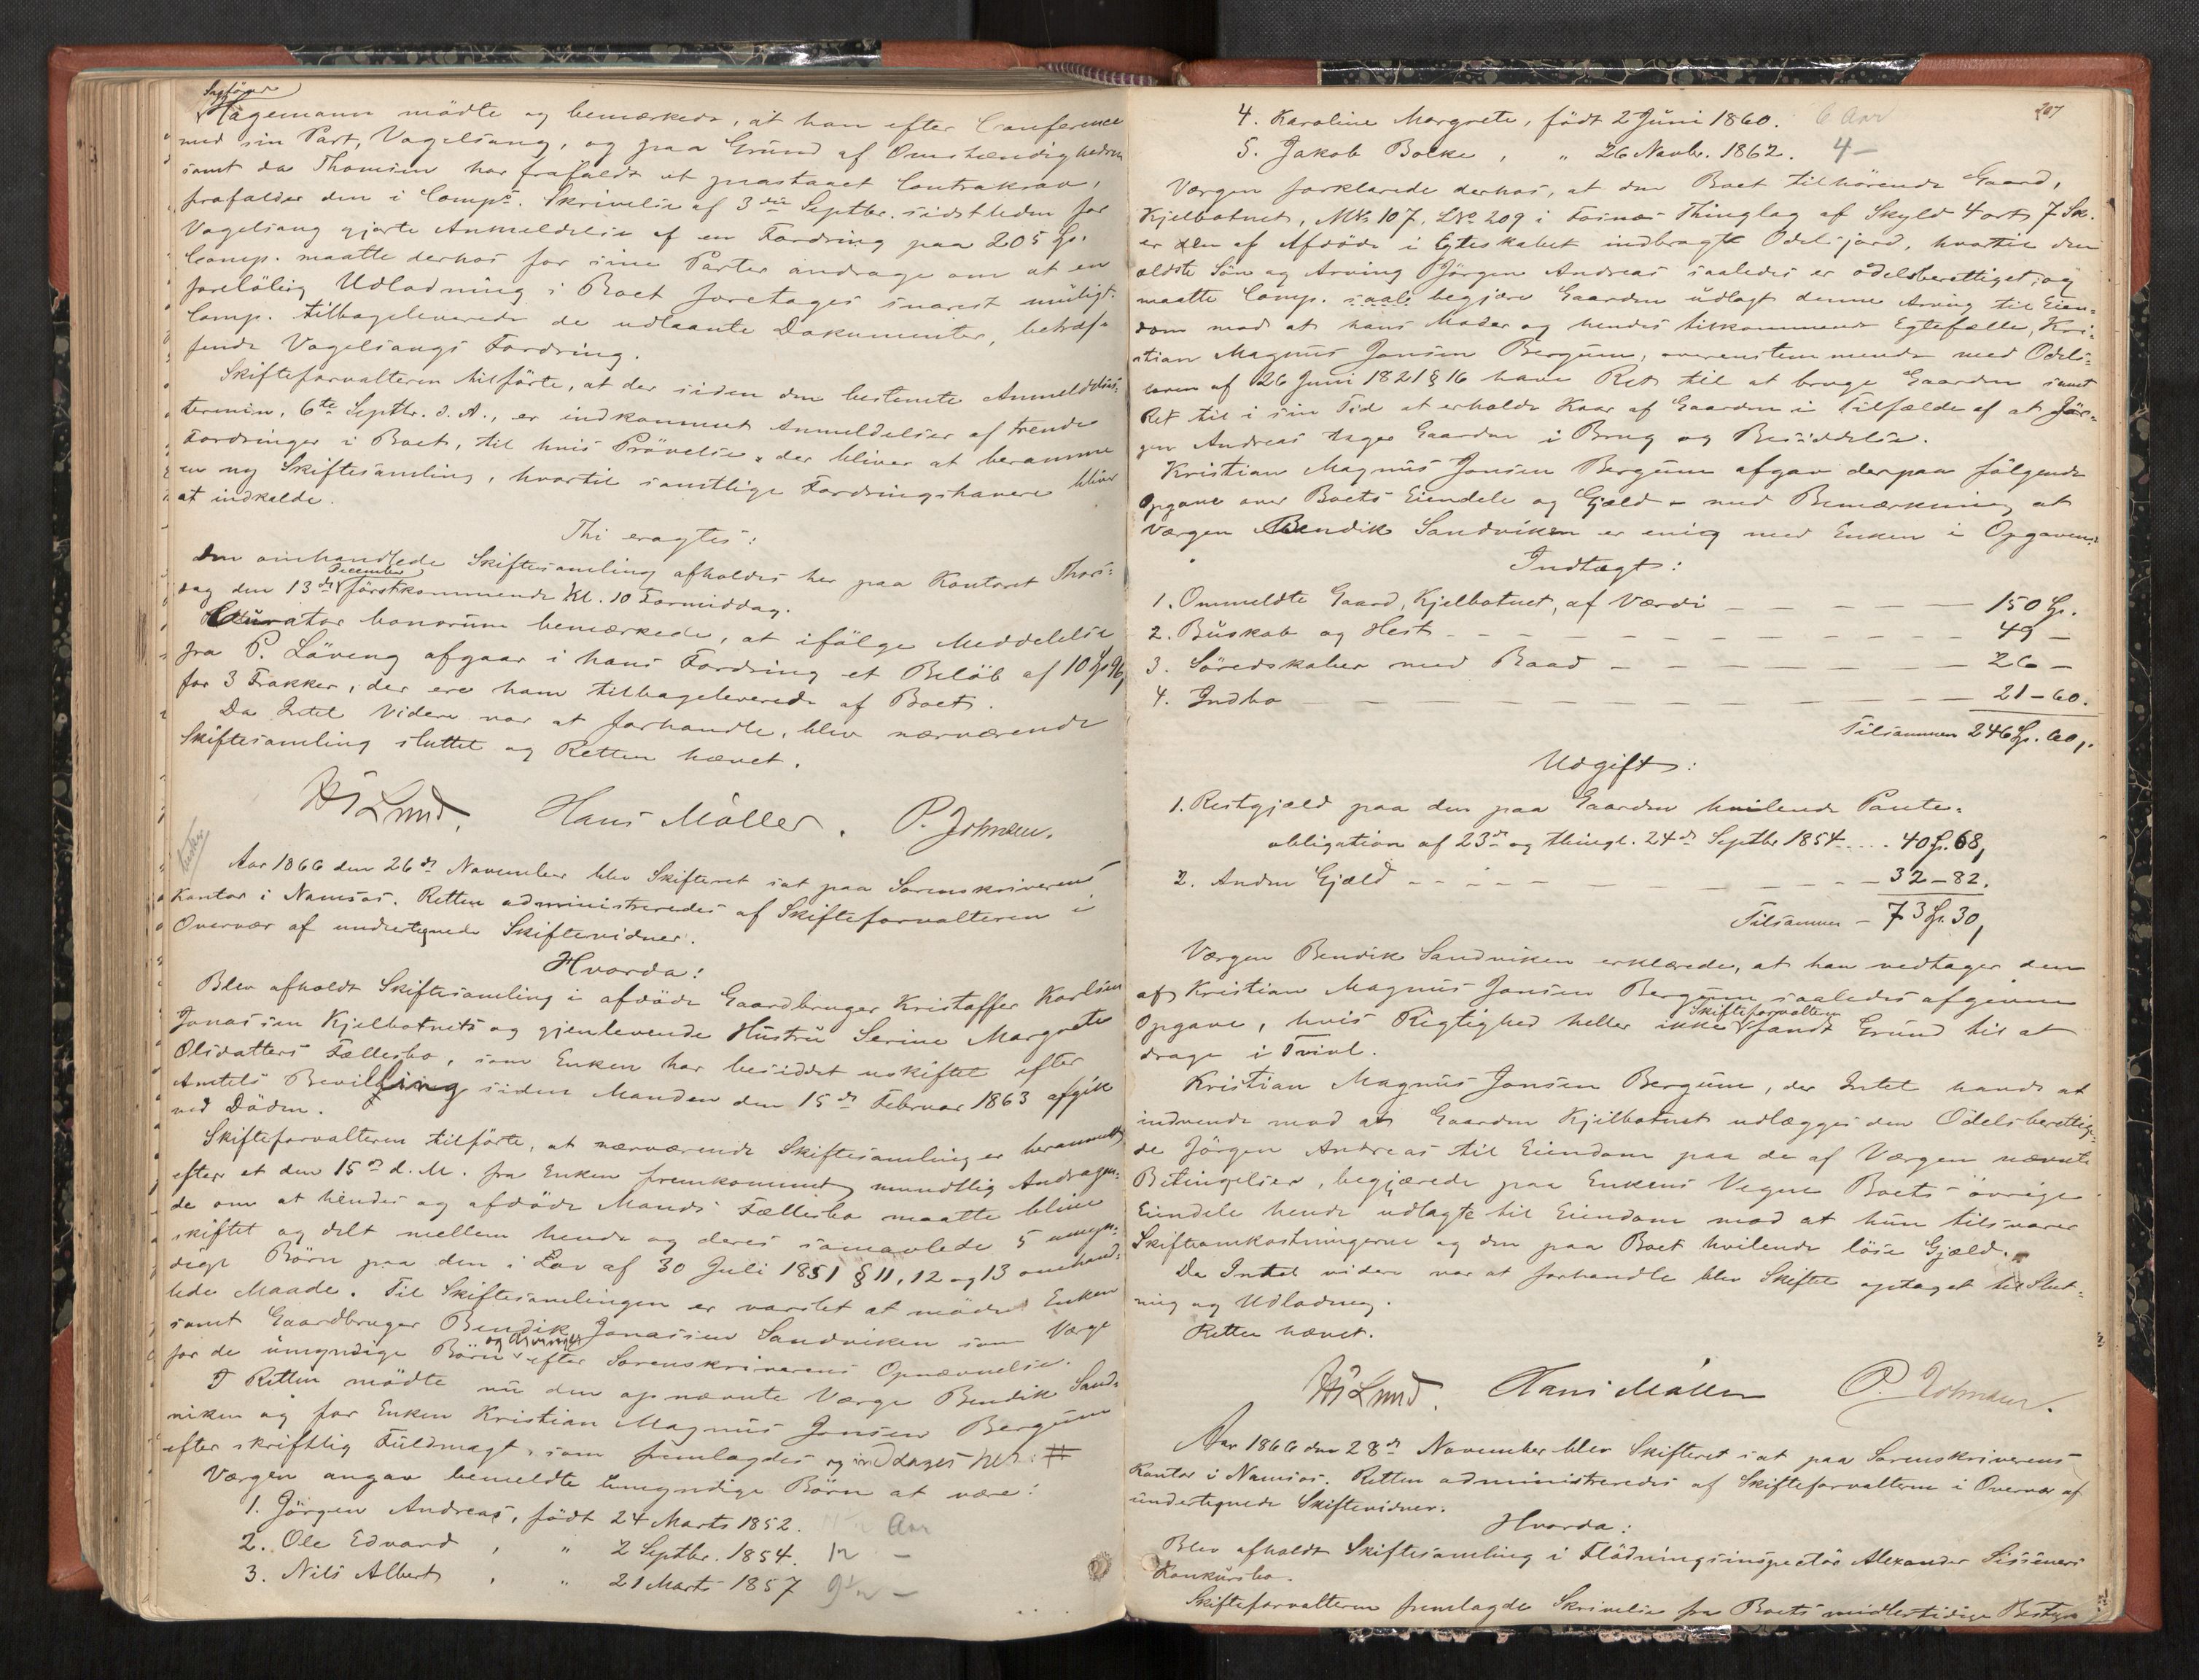 Sagfører
Hagemann mødte og bemærkede, at han efter Conference
med sin Part, Vogelsang, og paa Grund af Omstændighederne
samt da Thomsen har frafaldt et paastaaet Contrakrav,
frafalder den i Comps. Skrivelse af 3die Septbr. sidstleden for
Vogelsang gjorte Anmeldelse af en Fordring paa 205 Sp.
Comp. maatte derhos for sine Parter andrage om at en
foreløbig Udlodning i Boet foretages snarest muligt.
Comp. tilbageleverede de udlaante Dokumenter, betræf-
fende Vogelsangs Fordring.
Skifteforvalteren tilførte, at der siden den bestemte Anmeldelses-
termin, 6te Septbr. d. A., er indkommet Anmeldelser af trende
Fordringer i Boet, til hvis Prøvelse der bliver at beramme
en ny Skiftesamling, hvortil samtlige Fordringshavere bliver
at indkalde.
Thi eragtes:
Den omhandlede Skiftesamling afholdes her paa Kontoret Thors-
dag den 13de December førstkommende Kl. 10 Formiddag.
Curator bonorum bemærkede, at ifølge Meddelelse
fra P. Løveng afgaar i hans Fordring et Beløb af 10 Sp 96,
for 3 Frakker, der ere ham tilbageleverede af Boet.
Da Intet videre var at forhandle, blev nærværende
Skiftesamling sluttet og Retten hævet.
Lund. Hans Møller. P. Johnsen.
Aar 1866 den 26de November blev Skifteret sat paa Sorenskriverens
Kontor i Namsos. Retten administreredes af Skifteforvalteren i
Overvær af undertegnede Skiftevidner.
Hvorda:
Blev afholdt Skiftesamling i afdøde Gaardbruger Kristoffer Karlsen
Jonassen Kjelbotnets og gjenlevende Hustru Serine Margrete
Olsdatters Fællesbo, som Enken har besiddet uskiftet efter
Amtets Bevilling siden Manden den 15de Februar 1863 afgik
ved Døden.
Skifteforvalteren tilførte, at nærværende Skiftesamling er berammet
efter et den 15de d. M. fra Enken fremkommet mundtlig Andragen-
de om at hendes og afdøde Mands Fællesbo maatte blive
skiftet og delt mellem hende og deres sammenavlede 5 umyn-
dige Børn paa den i Lov af 30 Juli 1851 § 11, 12 og 13 omhand-
lede Maade. Til Skiftesamlingen er varslet at møde Enken
samt Gaardbruger Bendik Jonassen Sandviken som Værge
for de umyndige Børn og Arvinger efter Sorenskriverens Opnævnelse.
I Retten mødte nu den opnævnte Værge Bendik Sand-
viken og for Enken Kristian Magnus Jonsen Bergum
efter skriftlig Fuldmagt, som fremlagdes og inddages her: #
Værgen angav bemeldte Umyndige Børn at være:
1. Jørgen Andreas, født 24 Marts 1852. Aar
2. Ole Edvard, " 2 Septbr. 1854. 12 —
3. Nils Albert, " 21 Marts 1857 9½ —
207
4. Karoline Margrete, født 2 Juni 1860. 6 Aar
5. Jakob Bolke, " 26 Novbr. 1862. 4 —
Værgen forklarede derhos, at den Boet tilhørende Gaard,
Kjelbotnet, MNo 107, LNo 209 i Fosnæs Thinglag af Skyld 4 ort 7 Sk.
er den af Afdøde i Egteskabet indbragte Odelsjord, hvortil den
ældste Søn og Arving Jørgen Andreas saaledes er odelsberettiget, og
maatte Comp. begjære Gaarden udlagt denne Arving til Eien-
dom mod at hans Moder og hendes tilkommende Egtefælle, Kri-
stian Magnus Jonsen Bergum, overenstemmende med Odels-
loven af 26 Juni 1821 § 16 have Ret til at bruge Gaarden samt
Ret til i sin Tid at erholde Kaar af Gaarden i Tilfælde af at Jør-
gen Andreas tager Gaarden i Brug og Besiddelse.
Kristian Magnus Jonsen Bergum afgav derpaa følgende
Opgave over Boets Eiendele og Gjæld – med Bemærkning at
Værgen Bendik Sandviken er enig med Enken i Opgaven:
Indtægt:
1. Ommeldte Gaard, Kjelbotnet, af Værdi — 150 Sp.
2. Buskab og Hest — 49 —
3. Søredskaber med Baad — 26 —
4. Indbo — 21 – 60.
Tilsammen 246 Sp. 60,
Udgift:
1. Restgjæld paa den paa Gaarden hvilende Pante-
obligation af 23de og thingl. 24de Septbr 1854 .... 40 Sp. 68,
2. Anden Gjæld — 32 – 82.
Tilsammen – 73 Sp. 30,
Værgen Bendik Sandviken erklærede, at han vedtager den
af Kristian Magnus Jonsen Bergum saaledes afgivne
Opgave, hvis Rigtighed heller ikke Skifteforvalteren fandt Grund til at
drage i Tvivl.
Kristian Magnus Jonsen Bergum, der Intet havde at
indvende mod at Gaarden Kjelbotnet udlægges den Odelsberettige-
de Jørgen Andreas til Eiendom paa de af Værgen nævnte
Betingelser, begjærede paa Enkens Vegne Boets øvrige
Eiendele hende udlagte til Eiendom mod at hun tilsvarer
Skifteomkostningerne og den paa Boet hvilende løse Gjæld.
Da Intet videre var at forhandle blev Skiftet optaget til Slut-
ning og Udlodning.
Retten hævet.
Lund. Hans Møller P. Johnsen.
Aar 1866 den 28de November blev Skifteret sat paa Sorenskriverens
Kontor i Namsos. Retten administreredes af Skifteforvalteren i Overvær af
undertegnede Skiftevidner.
Hvorda:
Blev afholdt Skiftesamling i Flødningsinspectør Alexander Sisseners
Konkursbo.
Skifteforvalteren fremlagde Skrivelse fra Boets midlertidige Bestyrer